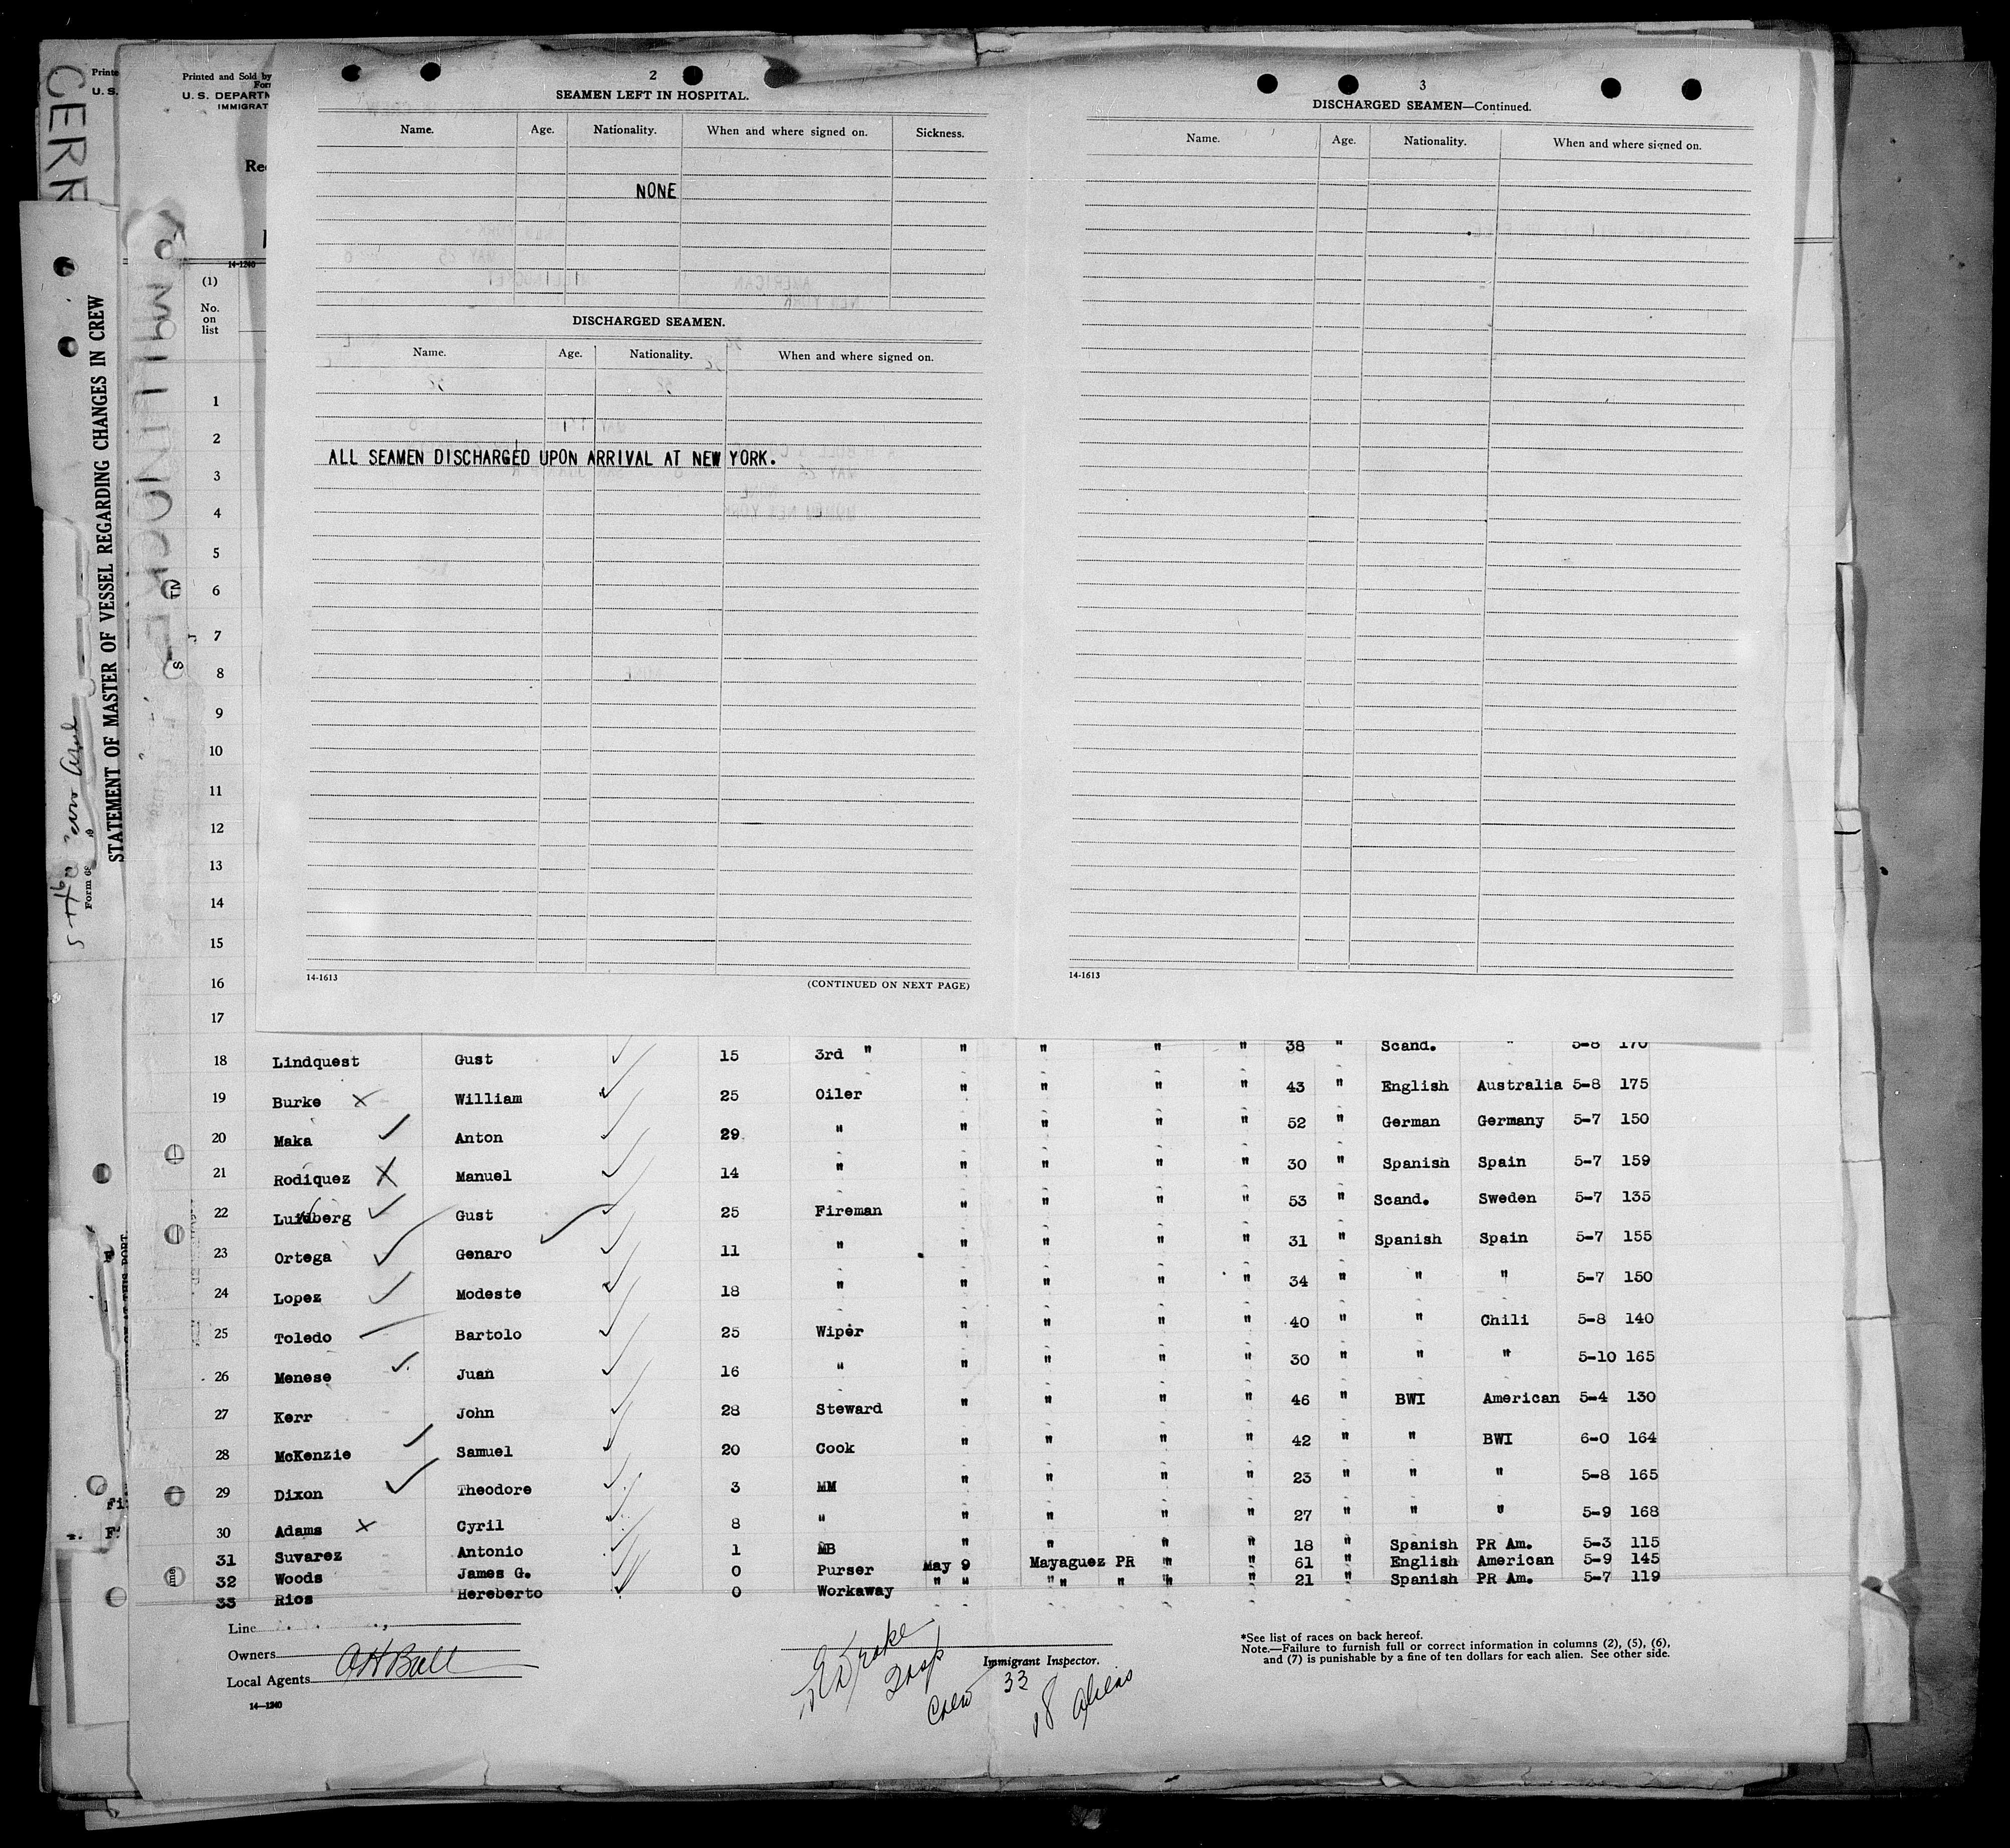 CERR
Printed and Sold by
U. S. DEPARTM
IMMIGRAT
14-1240
(1)
No.
on
list
STATEMENT OF MASTER OF VESSEL REGARDING CHANGES IN CREW
2
SEAMEN LEFT IN HOSPITAL.
Name. Age. Nationality. When and where signed on. Sickness.
NONE
DISCHARGED SEAMEN.
Name. Age. Nationality. When and where signed on.
ALL SEAMEN DISCHARGED UPON ARRIVAL AT NEW YORK.
14-1613
(CONTINUED ON NEXT PAGE)
3
DISCHARGED SEAMEN—Continued.
Name. Age. Nationality. When and where signed on.
14-1613
1
2
3
4
5
6
7
8
9
10
11
12
13
14
15
16
17
18 Lindquest Gust 15 3rd " " " " " 38 " Scand. " 5-8 170
19 Burke William 25 Oiler " " " " 43 " English Australia 5-8 175
20 Maka Anton 29 " " " " " 52 " German Germany 5-7 150
21 Rodiquez Manuel 14 " " " " " 30 " Spanish Spain 5-7 159
22 Lundberg Gust 25 Fireman " " " " 53 " Scand. Sweden 5-7 135
23 Ortega Genaro 11 " " " " " 31 " Spanish Spain 5-7 155
24 Lopez Modeste 18 " " " " " 34 " " " 5-7 150
25 Toledo Bartolo 25 Wiper " " " " 40 " " Chili 5-8 140
26 Menese Juan 16 " " " " " 30 " " " 5-10 165
27 Kerr John 28 Steward " " " " 46 " BWI American 5-4 130
28 McKenzie Samuel 20 Cook " " " " 42 " " BWI 6-0 164
29 Dixon Theodore 3 MM " " " " 23 " " " 5-8 165
30 Adams Cyril 8 " " " " " 27 " " " 5-9 168
31 Suvarez Antonio 1 MB " " " " 18 " Spanish PR Am. 5-3 115
32 Woods James G. 0 Purser May 9 Mayaguez PR " " 61 " English American 5-9 145
33 Rios Hereberto 0 Workaway " " " " " " " 21 " Spanish PR Am. 5-7 119
Line
Owners
Local Agents A H Bull
14—1240
Immigrant Inspector.
Crew 33
18 aliens
*See list of races on back hereof.
Note.—Failure to furnish full or correct information in columns (2), (5), (6),
and (7) is punishable by a fine of ten dollars for each alien. See other side.